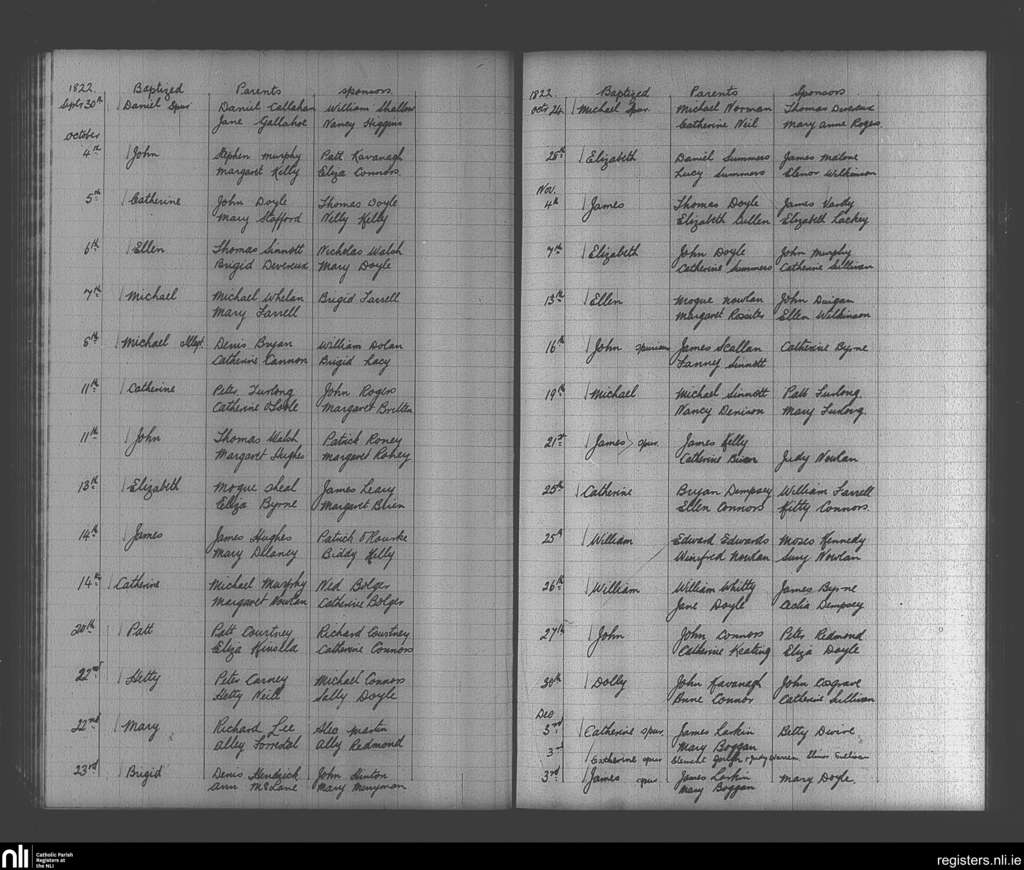 1822. Baptized Parents Sponsors.
Septr 30th Daniel Spur. Daniel Callahan William Shallow
Jane Gallahoe Nancy Higgins
October
4th John Stephen Murphy Patt Kavanagh
Margaret Kelly Eliza Connors.
5th Catherine John Doyle Thomas Doyle
Mary Stafford Nelly Kelly
6th Ellen Thomas Sinnott Nicholas Walsh
Brigid Devereux Mary Doyle
7th Michael Michael Whelan Brigid Farrell
Mary Farrell
8th Michael Denis Bryan William Dolan
Catherine Cannon Brigid Lacy
11th Catherine Peter Furlong John Rogers
Catherine O'Toole Margaret Britten
11th John Thomas Walsh Patrick Roney
Margaret Hughes Margaret Roney
13th Elizabeth Mogue Sheal James Leary
Eliza Byrne Margaret Brien
14th James James Hughes Patrick O'Rourke
Mary Delaney Biddy Kelly
14th Catherine Michael Murphy Ned Bolger
Margaret Nowlan Catherine Bolger
20th Patt Patt Courtney Richard Courtney
Eliza Kinslla Catherine Connors
22nd Hetty Peter Carney Michael Connors
Hetty Neill Sally Doyle
22nd Mary Richard Lee Alex Martin
Alley Forrestal Ally Redmond
23rd Brigid Denis Kendrick John Hinton
Ann McLane Mary Merryman
1822 Baptized Parents Sponsors.
Octr 24 Michael Spur. Michael Norman Thomas Devereux
Catherine Neil Mary Anne Roges
28th Elizabeth Daniel Summers James Malone
Lucy Summers Elenor Wilkinson
Nov.
4th James Thomas Doyle James Vardy
Elizabeth Cullen Elizabeth Lackey
7th Elizabeth John Doyle John Murphy
Catherine Summers Catherine Sullivan
13th Ellen Mogue Nowlan John Duigan
Margaret Rossiter Ellen Wilkinson
16th John spurious James Scallan Catherine Byrne
Fanney Sinnott
19th Michael Michael Sinnott Patt Furlong
Nancy Denison Mary Furlong.
21st James spur. James Kelly
Catherine Brien Judy Nowlan
25th Catherine Bryan Dempsey William Farrell
Ellen Connors Kitty Connors.
25th William Edward Edwards Moses Kennedy
Winifred Nowlan Suny Nowlan
26th William William Whitty James Byrne
Jane Doyle Cecilia Dempsey
27th John John Connors Peter Redmond
Catherine Keating Eliza Doyle
30th Dolly John Kavanagh John Cosgrave
Anne Connor Catherine Sullivan
Dec
3rd Catherine spur. James Larkin Betty Divire
Mary Boggan
3rd Catherine spur
3rd James spur. James Larkin Mary Doyle.
Mary Boggan
nli Catholic Parish
Registers at
the NLI
registers.nli.ie